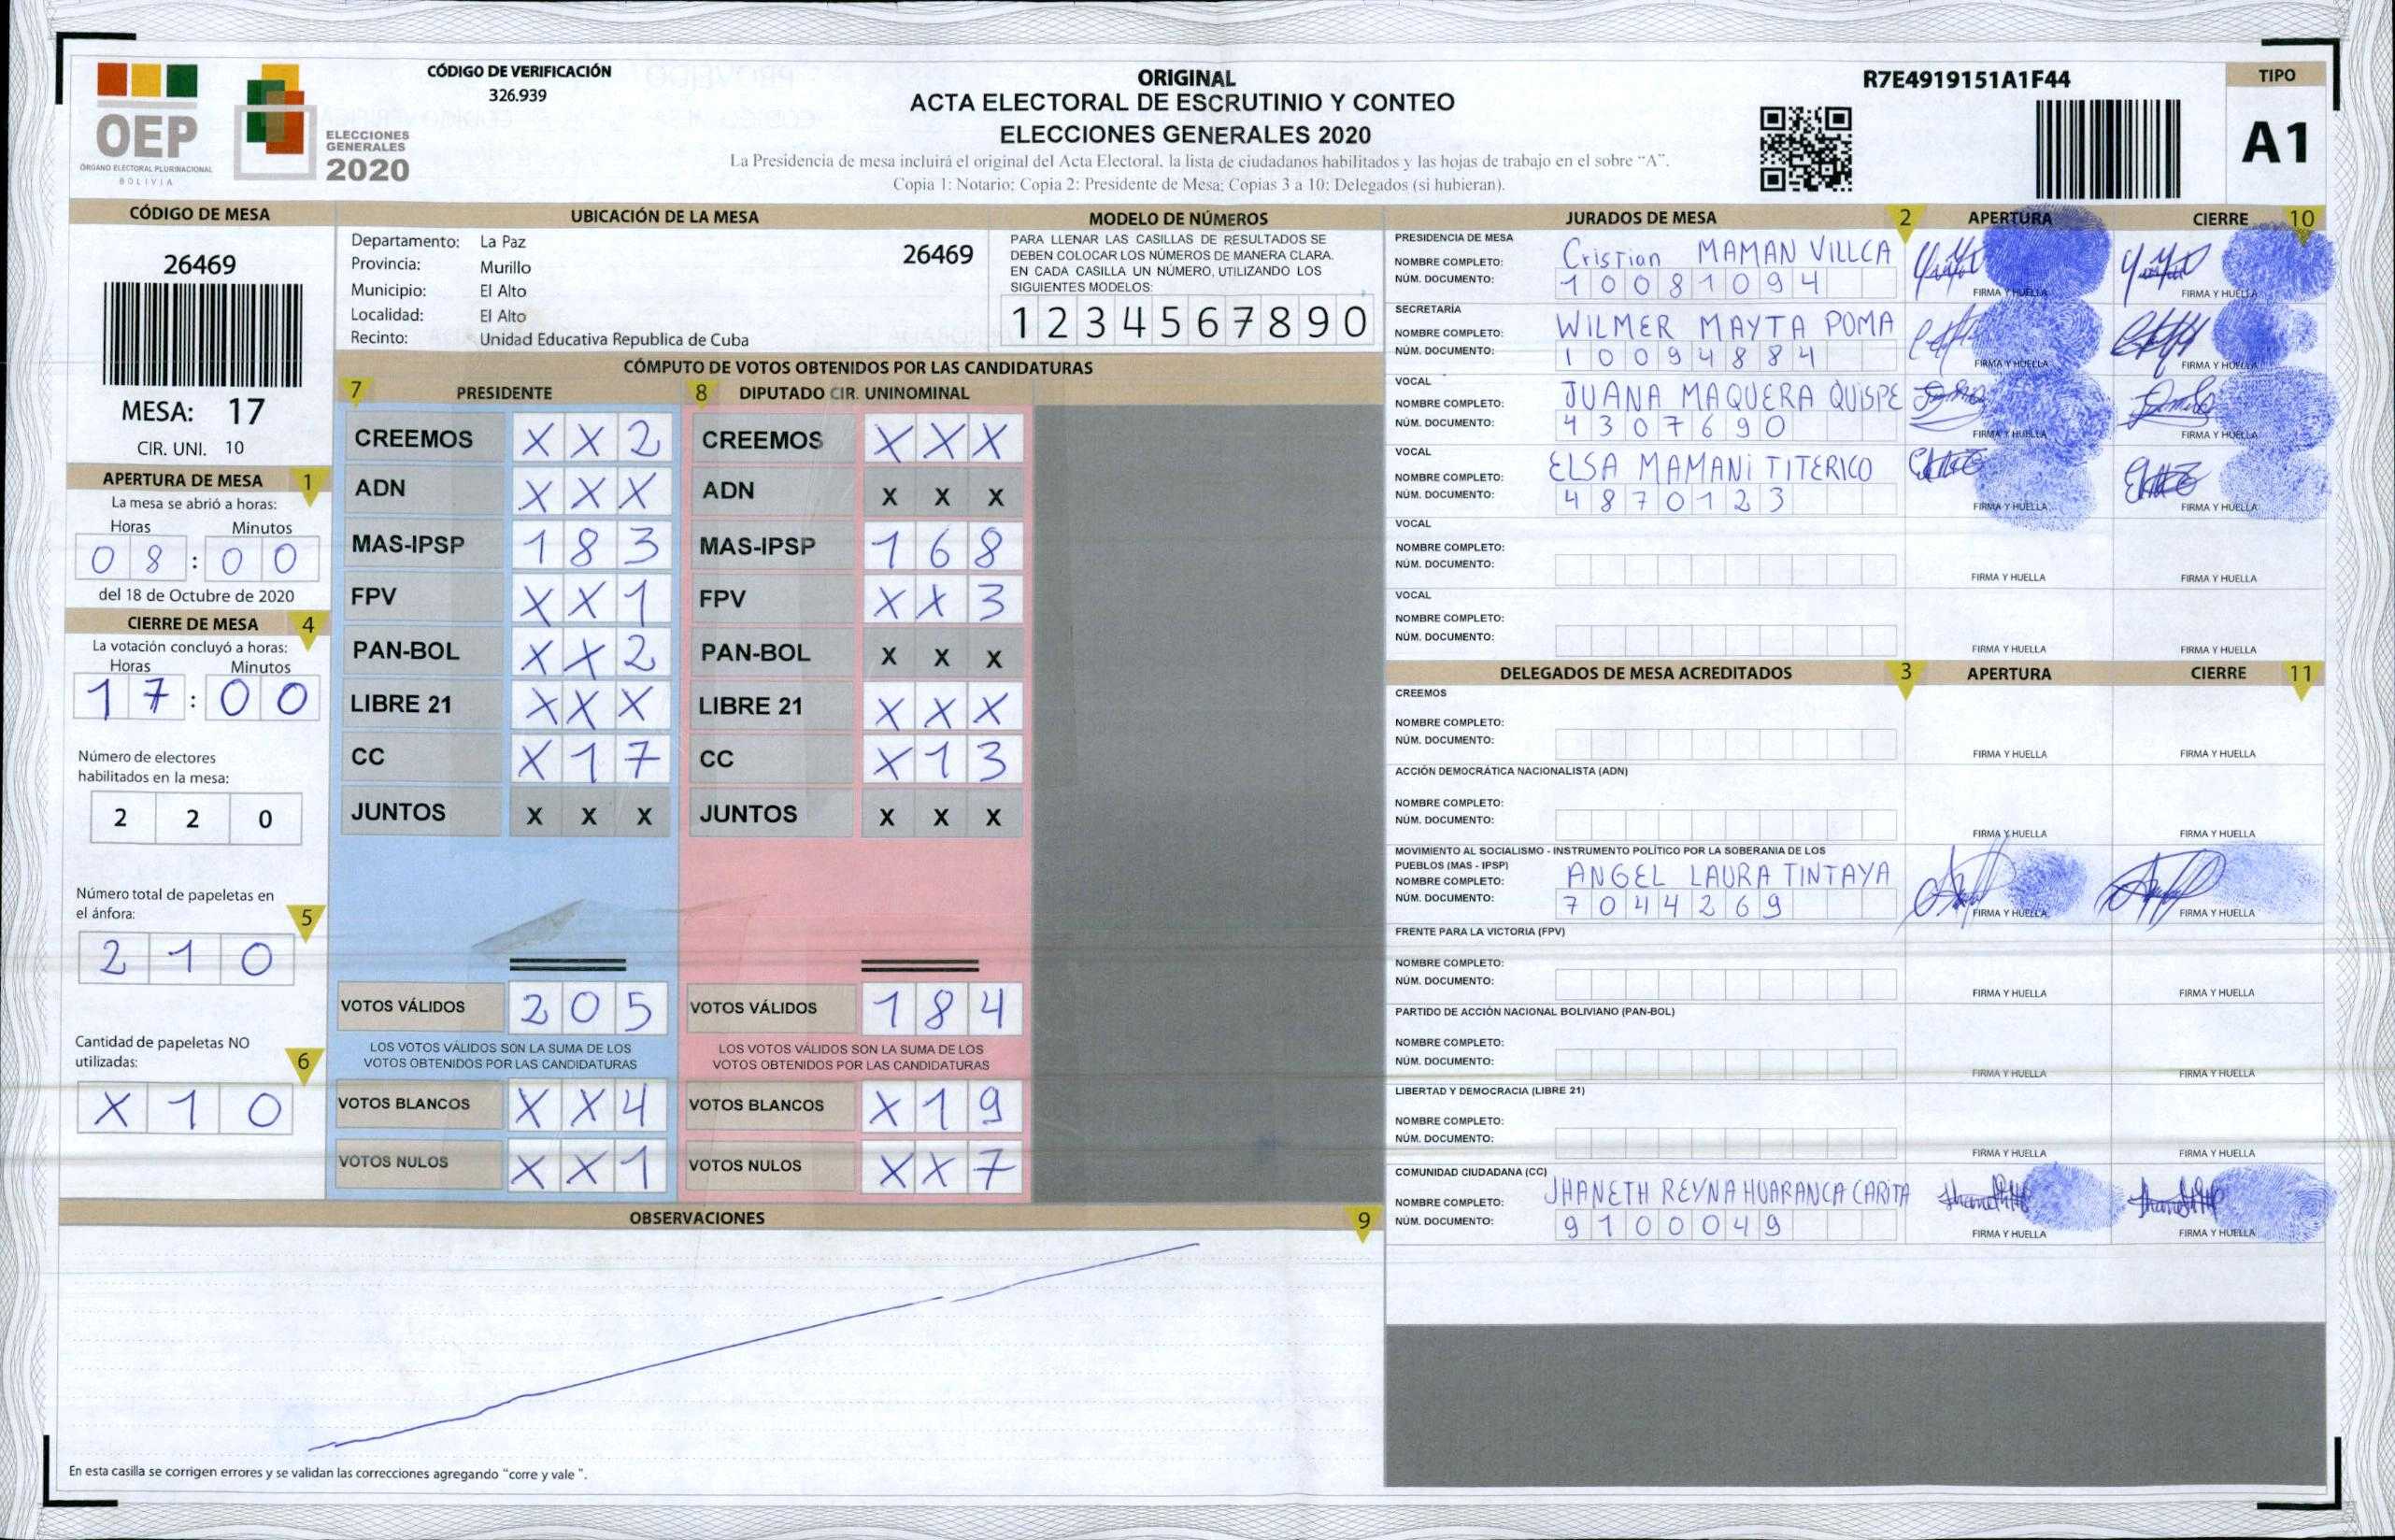 OEP
ÓRGANO ELECTORAL PLURINACIONAL
BOLIVIA
ELECCIONES
GENERALES
2020
CÓDIGO DE VERIFICACIÓN
326.939
ORIGINAL
ACTA ELECTORAL DE ESCRUTINIO Y CONTEO
ELECCIONES GENERALES 2020
La Presidencia de mesa incluirá el original del Acta Electoral, la lista de ciudadanos habilitados y las hojas de trabajo en el sobre "A".
Copia 1: Notario; Copia 2: Presidente de Mesa; Copias 3 a 10: Delegados (si hubieran).
R7E4919151A1F44
TIPO
A1
CÓDIGO DE MESA
26469
MESA: 17
CIR. UNI. 10
APERTURA DE MESA 1
La mesa se abrió a horas:
Horas Minutos
0 8 : 0 0
del 18 de Octubre de 2020
CIERRE DE MESA 4
La votación concluyó a horas:
Horas Minutos
1 7 : 0 0
Número de electores
habilitados en la mesa:
2 2 0
Número total de papeletas en
el ánfora: 5
2 1 0
Cantidad de papeletas NO
utilizadas: 6
X 1 0
UBICACIÓN DE LA MESA
Departamento: La Paz 26469
Provincia: Murillo
Municipio: El Alto
Localidad: El Alto
Recinto: Unidad Educativa Republica de Cuba
MODELO DE NÚMEROS
PARA LLENAR LAS CASILLAS DE RESULTADOS SE
DEBEN COLOCAR LOS NÚMEROS DE MANERA CLARA.
EN CADA CASILLA UN NÚMERO, UTILIZANDO LOS
SIGUIENTES MODELOS:
1 2 3 4 5 6 7 8 9 0
CÓMPUTO DE VOTOS OBTENIDOS POR LAS CANDIDATURAS
7 PRESIDENTE 8 DIPUTADO CIR. UNINOMINAL
CREEMOS X X 2 CREEMOS X X X
ADN X X X ADN X X X
MAS-IPSP 1 8 3 MAS-IPSP 1 6 8
FPV X X 1 FPV X X 3
PAN-BOL X X 2 PAN-BOL X X X
LIBRE 21 X X X LIBRE 21 X X X
CC X 1 7 CC X 1 3
JUNTOS X X X JUNTOS X X X
VOTOS VÁLIDOS 2 0 5 VOTOS VÁLIDOS 1 8 4
LOS VOTOS VÁLIDOS SON LA SUMA DE LOS LOS VOTOS VÁLIDOS SON LA SUMA DE LOS
VOTOS OBTENIDOS POR LAS CANDIDATURAS VOTOS OBTENIDOS POR LAS CANDIDATURAS
VOTOS BLANCOS X X 4 VOTOS BLANCOS X 1 9
VOTOS NULOS X X 1 VOTOS NULOS X X 7
OBSERVACIONES 9
En esta casilla se corrigen errores y se validan las correcciones agregando "corre y vale ".
JURADOS DE MESA 2 APERTURA CIERRE 10
PRESIDENCIA DE MESA
NOMBRE COMPLETO: Cristian MAMAN VILLCA
NÚM. DOCUMENTO: 1 0 0 8 1 0 9 4 FIRMA Y HUELLA FIRMA Y HUELLA
SECRETARÍA
NOMBRE COMPLETO: WILMER MAYTA POMA
NÚM. DOCUMENTO: 1 0 0 9 4 8 8 4 FIRMA Y HUELLA FIRMA Y HUELLA
VOCAL
NOMBRE COMPLETO: JUANA MAQUERA QUISPE
NÚM. DOCUMENTO: 4 3 0 7 6 9 0 FIRMA Y HUELLA FIRMA Y HUELLA
VOCAL
NOMBRE COMPLETO: ELSA MAMANi TITERICO
NÚM. DOCUMENTO: 4 8 7 0 1 2 3 FIRMA Y HUELLA FIRMA Y HUELLA
VOCAL
NOMBRE COMPLETO:
NÚM. DOCUMENTO: FIRMA Y HUELLA FIRMA Y HUELLA
VOCAL
NOMBRE COMPLETO:
NÚM. DOCUMENTO: FIRMA Y HUELLA FIRMA Y HUELLA
DELEGADOS DE MESA ACREDITADOS 3 APERTURA CIERRE 11
CREEMOS
NOMBRE COMPLETO:
NÚM. DOCUMENTO: FIRMA Y HUELLA FIRMA Y HUELLA
ACCIÓN DEMOCRÁTICA NACIONALISTA (ADN)
NOMBRE COMPLETO:
NÚM. DOCUMENTO: FIRMA Y HUELLA FIRMA Y HUELLA
MOVIMIENTO AL SOCIALISMO - INSTRUMENTO POLÍTICO POR LA SOBERANIA DE LOS
PUEBLOS (MAS - IPSP)
NOMBRE COMPLETO: ANGEL LAURA TINTAYA
NÚM. DOCUMENTO: 7 0 4 4 2 6 9 FIRMA Y HUELLA FIRMA Y HUELLA
FRENTE PARA LA VICTORIA (FPV)
NOMBRE COMPLETO:
NÚM. DOCUMENTO: FIRMA Y HUELLA FIRMA Y HUELLA
PARTIDO DE ACCIÓN NACIONAL BOLIVIANO (PAN-BOL)
NOMBRE COMPLETO:
NÚM. DOCUMENTO: FIRMA Y HUELLA FIRMA Y HUELLA
LIBERTAD Y DEMOCRACIA (LIBRE 21)
NOMBRE COMPLETO:
NÚM. DOCUMENTO: FIRMA Y HUELLA FIRMA Y HUELLA
COMUNIDAD CIUDADANA (CC)
NOMBRE COMPLETO: JHANETH REYNA HUARANCA CARITA
NÚM. DOCUMENTO: 9 1 0 0 0 4 9 FIRMA Y HUELLA FIRMA Y HUELLA